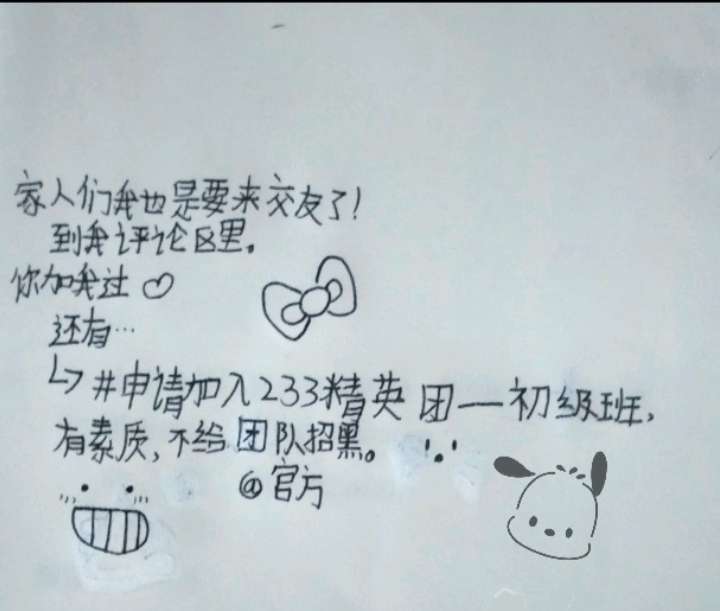 家人们我也是要来交友了!
到我评论区里。
你加我过♡
还有…
↳#申请加入233精英团—初级班,
有素质,不给团队招黑。
@官方